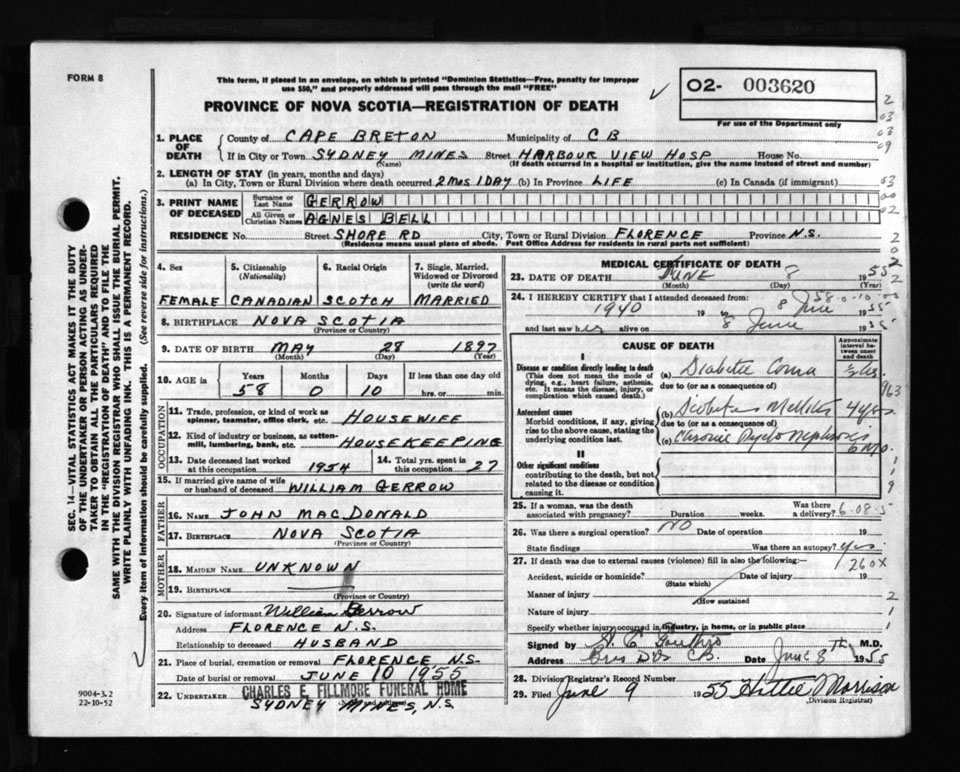 FORM 8
This form, if placed in an envelope, on which is printed "Dominion Statistics—Free, penalty for improper
use $50," and properly addressed will pass through the mail "FREE"
PROVINCE OF NOVA SCOTIA—REGISTRATION OF DEATH
02- 003620
For use of the Department only
1. PLACE OF DEATH
County of CAPE BRETON Municipality of C B
If in City or Town SYDNEY MINES Street HARBOUR VIEW HOSP House No.
(Name) (If death occurred in a hospital or institution, give the name instead of street and number)
2. LENGTH OF STAY (in years, months and days)
(a) In City, Town or Rural Division where death occurred 2 MOS 1 DAY (b) In Province LIFE (c) In Canada (if immigrant)
3. PRINT NAME OF DECEASED
Surname or Last Name GERROW
All Given or Christian Names AGNES BELL
RESIDENCE No. Street SHORE RD City, Town or Rural Division FLORENCE Province N.S.
(Residence means usual place of abode. Post Office Address for residents in rural parts not sufficient)
4. Sex
FEMALE
5. Citizenship (Nationality)
CANADIAN
6. Racial Origin
SCOTCH
7. Single, Married, Widowed or Divorced (write the word)
MARRIED
8. BIRTHPLACE NOVA SCOTIA
(Province or Country)
9. DATE OF BIRTH MAY 28 1897
(Month) (Day) (Year)
10. AGE in
Years Months Days If less than one day
58 0 10 hrs. or min.
OCCUPATION
11. Trade, profession, or kind of work as
spinner, teamster, office clerk, etc. HOUSEWIFE
12. Kind of industry or business, as cotton-
mill, lumbering, bank, etc. HOUSEKEEPING
13. Date deceased last worked
at this occupation 1954
14. Total yrs. spent in
this occupation 27
15. If married give name of wife
or husband of deceased WILLIAM GERROW
FATHER
16. NAME JOHN MACDONALD
17. BIRTHPLACE NOVA SCOTIA
(Province or Country)
MOTHER
18. MAIDEN NAME UNKNOWN
19. BIRTHPLACE
(Province or Country)
20. Signature of informant William Gerrow
Address FLORENCE N.S.
Relationship to deceased HUSBAND
21. Place of burial, cremation or removal FLORENCE N.S.
Date of burial or removal JUNE 10 1955
22. UNDERTAKER CHARLES E. FILLMORE FUNERAL HOME
SYDNEY MINES, N.S.
MEDICAL CERTIFICATE OF DEATH
23. DATE OF DEATH JUNE 8 1955
(Month) (Day) (Year)
24. I HEREBY CERTIFY that I attended deceased from:
1940 19 to 8 June 1955
and last saw her alive on 8 June 1955
CAUSE OF DEATH
Approximate interval between onset and death
I
Disease or condition directly leading to death
(This does not mean the mode of
dying, e.g., heart failure, asthenia,
etc. It means the disease, injury, or
complication which caused death.)
(a) Diabetic Coma
due to (or as a consequence of)
Antecedent causes
Morbid conditions, if any, giving
rise to the above cause, stating the
underlying condition last.
(b) Diabetes Mellitus 4 yrs.
due to (or as a consequence of)
(c) Chronic 6 mo.
II
Other significant conditions
contributing to the death, but not
related to the disease or condition
causing it.
25. If a woman, was the death
associated with pregnancy? Duration weeks. Was there a delivery?
26. Was there a surgical operation? NO Date of operation 19
State findings Was there an autopsy? yes
27. If death was due to external causes (violence) fill in also the following:—
Accident, suicide or homicide? Date of injury 19
(State which)
Manner of injury
(How sustained
Nature of injury
Specify whether injury occurred in industry, in home, or in public place
Signed by M.D.
Address Date June 8th 1955
28. Division Registrar's Record Number
29. Filed June 9 1955 Hattie Morrison
(Division Registrar)
SEC. 14—VITAL STATISTICS ACT MAKES IT THE DUTY
OF THE UNDERTAKER OR PERSON ACTING AS UNDER-
TAKER TO OBTAIN ALL THE PARTICULARS REQUIRED
IN THE "REGISTRATION OF DEATH" AND TO FILE THE
SAME WITH THE DIVISION REGISTRAR WHO SHALL ISSUE THE BURIAL PERMIT.
WRITE PLAINLY WITH UNFADING INK. THIS IS A PERMANENT RECORD.
Every item of information should be carefully supplied. (See reverse side for instructions.)
9004-3.2
22-10-52